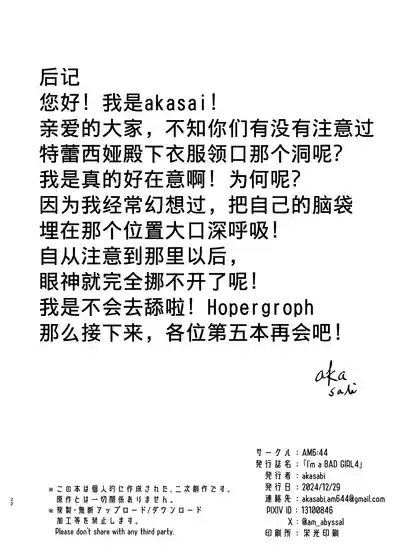 后记
您好！我是akasai！
亲爱的大家，不知你们有没有注意过
特蕾西娅殿下衣服领口那个洞呢？
我是真的好在意啊！为何呢？
因为我经常幻想过，把自己的脑袋
埋在那个位置大口深呼吸！
自从注意到那里以后，
眼神就完全挪不开了呢！
我是不会去舔啦！Hopergroph
那么接下来，各位第五本再会吧！
aka
sabi
サークル：AM6:44
発行誌名：「I'm a BAD GIRL4」
発行者：akasabi
発行日：2024/12/29
連絡先：akasabi.am644@gmail.com
PIXIV ID：13100846
X：@am_abyssal
印刷所：栄光印刷
※この本は個人的に作成された、二次創作です。
原作とは一切関係ありません。
※複製・無断アップロード/ダウンロード
加工等を禁止します。
Please don't share with any third party.